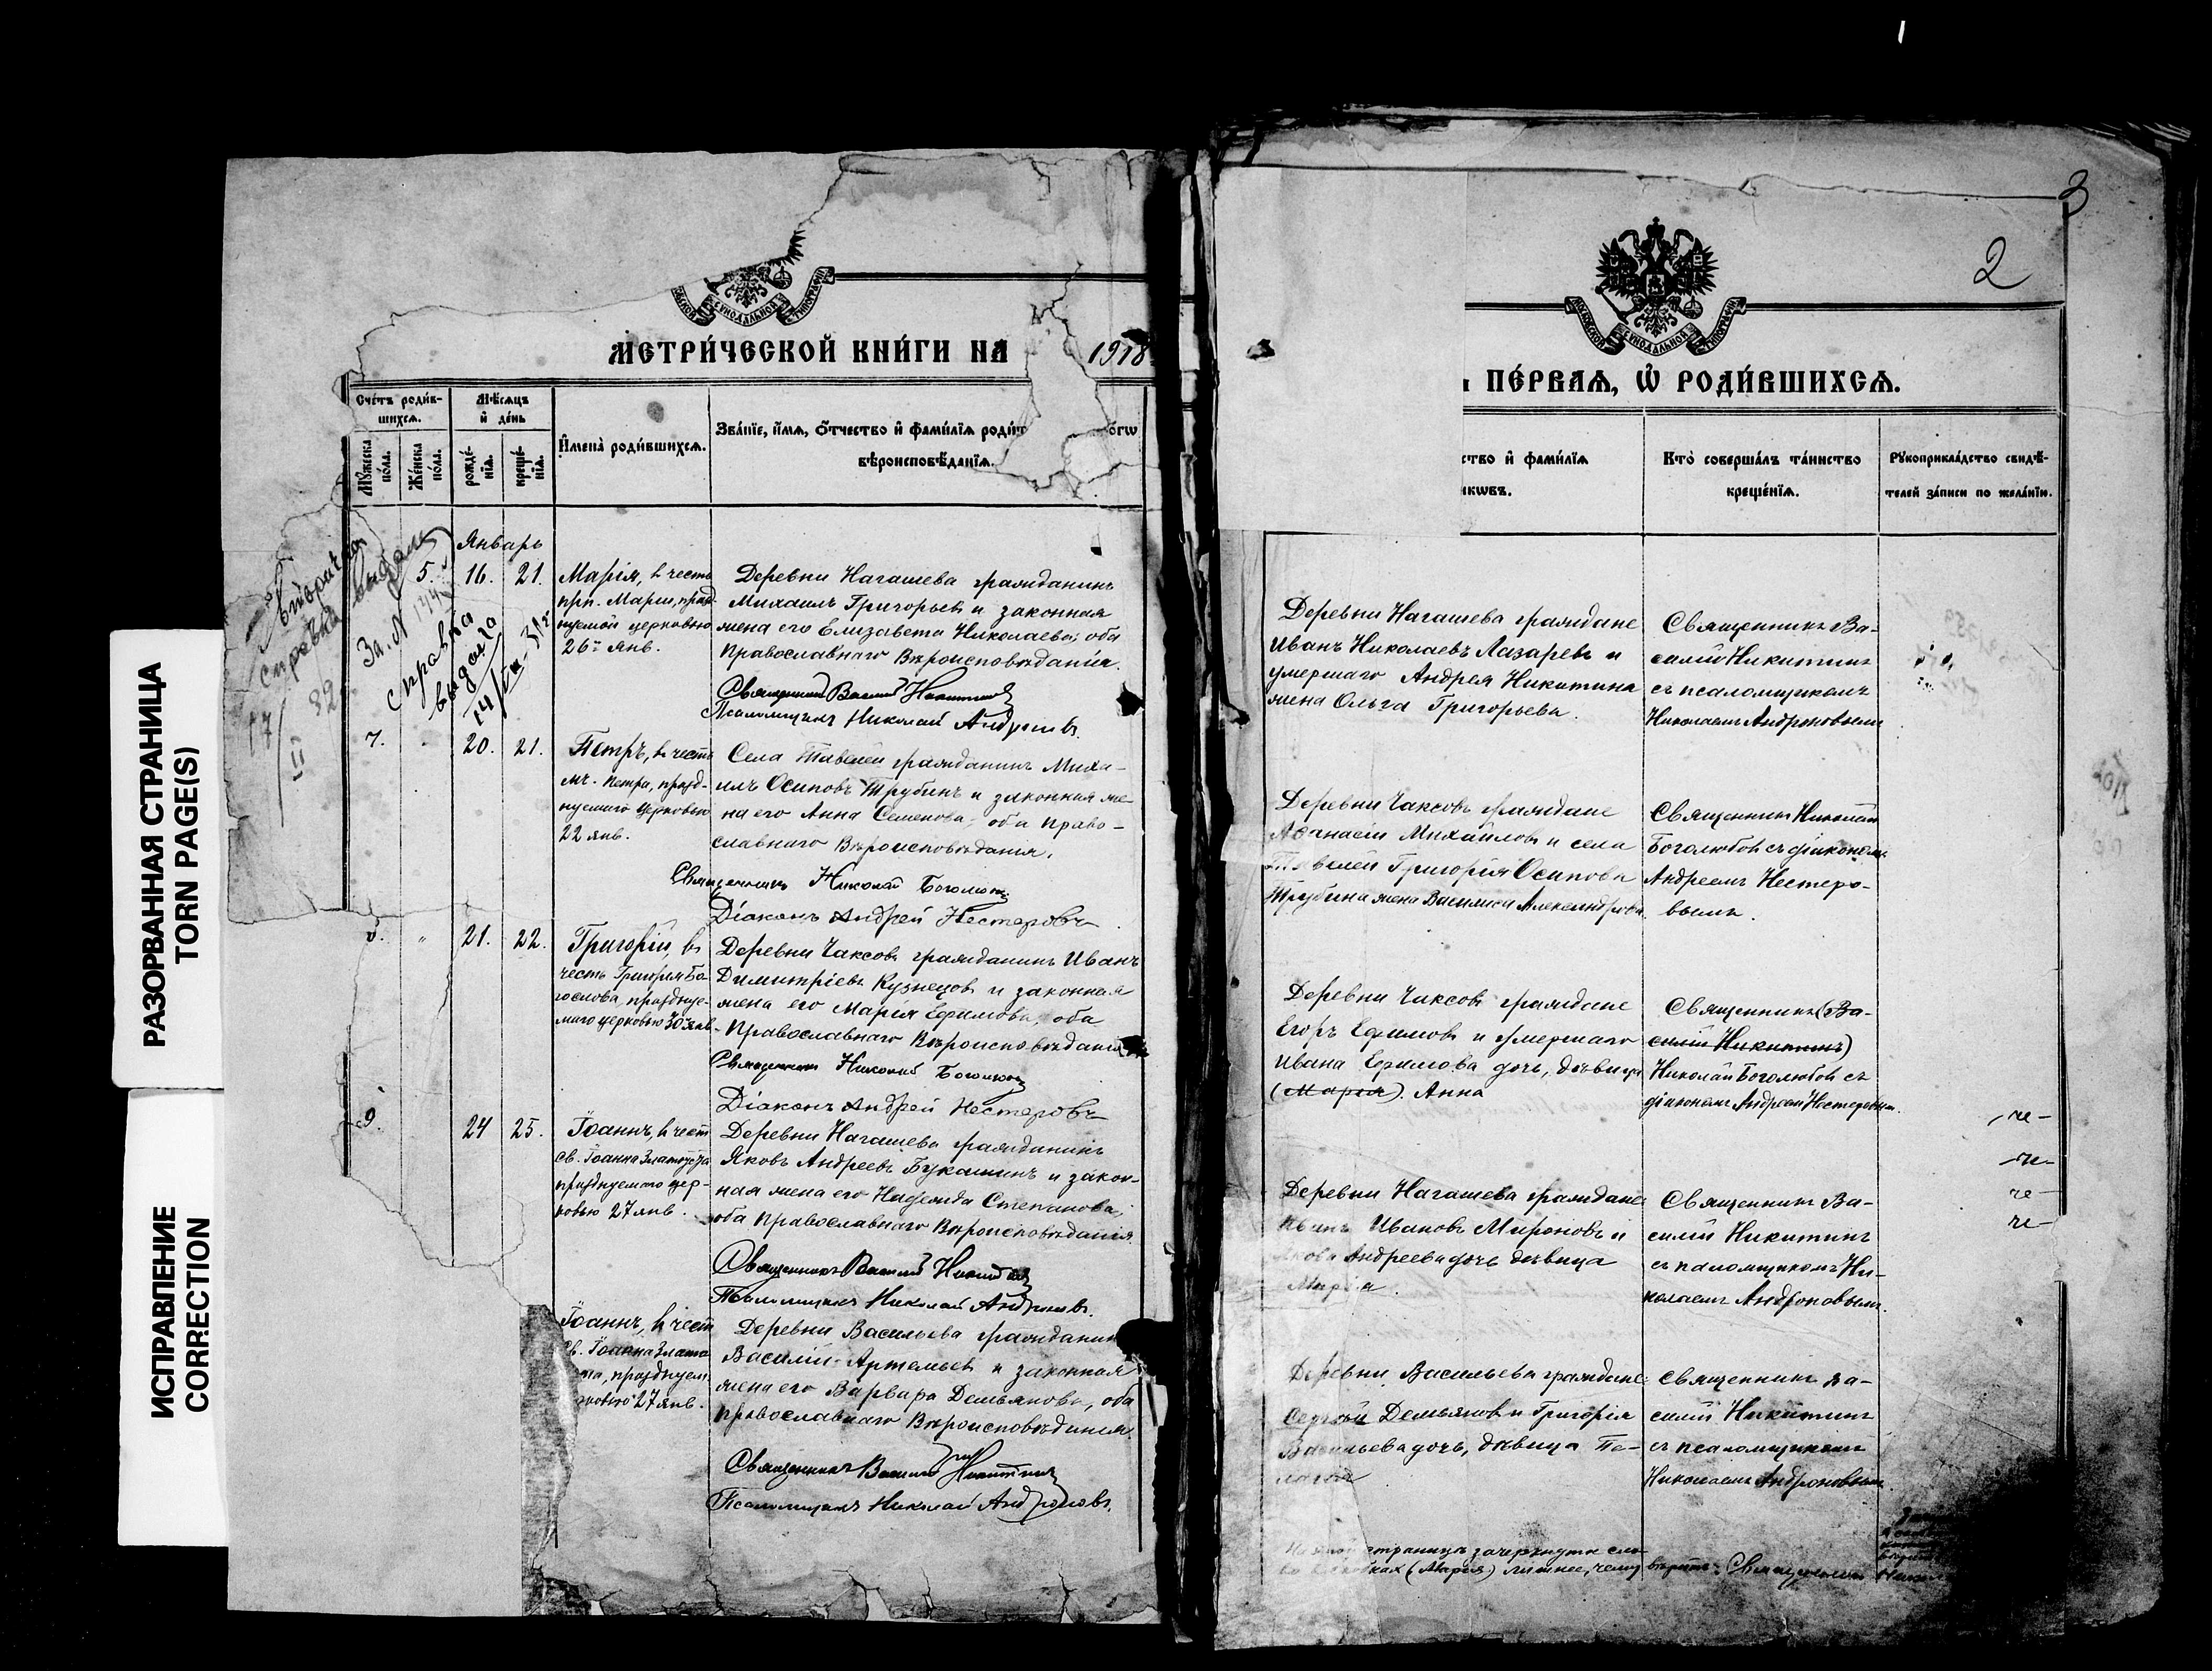 РАЗОРВАННАЯ СТРАНИЦА
TORN PAGE(S)
ИСПРАВЛЕНИЕ
CORRECTION
СѴНОДАЛЬНОЙ
МЕТРИ́ЧЕСКОЙ КНИ́ГИ НА 1918
Сче́тъ роди́в-
шихсѧ.
Мѣ́сѧцъ
и҆ де́нь
Мꙋ́жеска
по́ла.
Же́нска
по́ла.
рожде́-
нїѧ.
креще́-
нїѧ.
И҆мена̀ роди́вшихсѧ.
Зва́нїе, и҆́мѧ, ѻ҆́тчество и҆ фами́лїѧ роди́т
вѣроисповѣ́данїѧ.
справка
выдана
Январь
5. 16. 21.
Марія, въ честь
прп. Маріи, празд-
нуемой церковью
26го янв.
Деревни Нагашева гражданинъ
Михаилъ Григорьевъ и законная
жена его Елизавета Николаева, оба
Православнаго Вѣроисповѣданія.
Священникъ Василій Никитинъ
Псаломщикъ Николай Андроновъ.
7. 20. 21.
Петръ, въ честь
мч. Петра, празд-
нуемаго церковью
22 янв.
Села Тавелей гражданинъ Миха-
илъ Осиповъ Трубинъ и законная же-
на его Анна Семенова, оба Право-
славнаго Вѣроисповѣданія.
Священникъ Николай Боголюбовъ
Діаконъ Андрей Нестеровъ
21. 22.
Григорій, въ
честь Григорія Бо-
гослова, празднуе-
маго церковью 30 янв.
Деревни Чаксовъ гражданинъ Иванъ
Димитріевъ Кузнецовъ и законная
жена его Марія Ефимова, оба
Православнаго Вѣроисповѣданія
Священникъ Николай Боголюбовъ
Діаконъ Андрей Нестеровъ
9. 24 25.
Іоаннъ, въ честь
св. Іоанна Златоуста
празднуемаго цер-
ковью 27 янв.
Деревни Нагашева гражданинъ
Яковъ Андреевъ Букашинъ и закон-
ная жена его Надежда Степанова,
оба Православнаго Вѣроисповѣданія.
Священникъ Василій Никитинъ
Псаломщикъ Николай Андроновъ.
Іоаннъ, въ честь
Св. Іоанна Злато
празднуем
27 янв.
Деревни Васильева гражданинъ
Василій Артемьевъ и законная
жена его Варвара Демьянова, оба
Православнаго Вѣроисповѣданія.
Священникъ Василій Никитинъ
Псаломщикъ Николай Андроновъ.
3
2
МОСКОВСКОЙ СѴНОДАЛЬНОЙ ТИПОГРАФІИ
ПЕ́РВАѦ, Ѡ҆ РОДИ́ВШИХСѦ.
ство и҆ фами́лїѧ
икѡвъ.
Кто̀ соверша́лъ та́инство
креще́нїѧ.
Рꙋкоприкла́дство свидѣ́-
телей за́писи по жела́нїю.
Деревни Нагашева граждане
Иванъ Николаевъ Лазаревъ и
умершаго Андрея Никитина
жена Ольга Григорьева.
Священникъ Ва-
силій Никитинъ
съ псаломщикомъ
Николаемъ Андроновымъ
Деревни Чаксовъ граждане
Афанасій Михайловъ и села
Тавелей Григорія Осипова
Трубина жена Василиса Александрова.
Священникъ Николай
Боголюбовъ съ діакономъ
Андреемъ Нестеро-
вымъ.
Деревни Чаксовъ граждане
Егоръ Ефимовъ и умершаго
Ивана Ефимова дочь, дѣвица
(Марія). Анна
Священникъ (Ва-
силій Никитинъ)
Николай Боголюбовъ съ
діакономъ Андреемъ Нестеровымъ.
Деревни Нагашева граждане
Иванъ Ивановъ Мироновъ и
Якова Андреева дочь дѣвица
Марія.
Священникъ Ва-
силій Никитинъ
съ паломщикомъ Ни-
колаемъ Андроновымъ.
Деревни Васильева граждане:
Сергѣй Демьяновъ и Григорія
Васильева дочь, дѣвица Пе-
лагія
священникъ Ва-
силій Никитинъ
съ псаломщикомъ
Николаемъ Андроновымъ.
На этой страницѣ зачеркнуто сло-
во въ скобках (Марія) лишнее, чему вѣрить: Священникъ